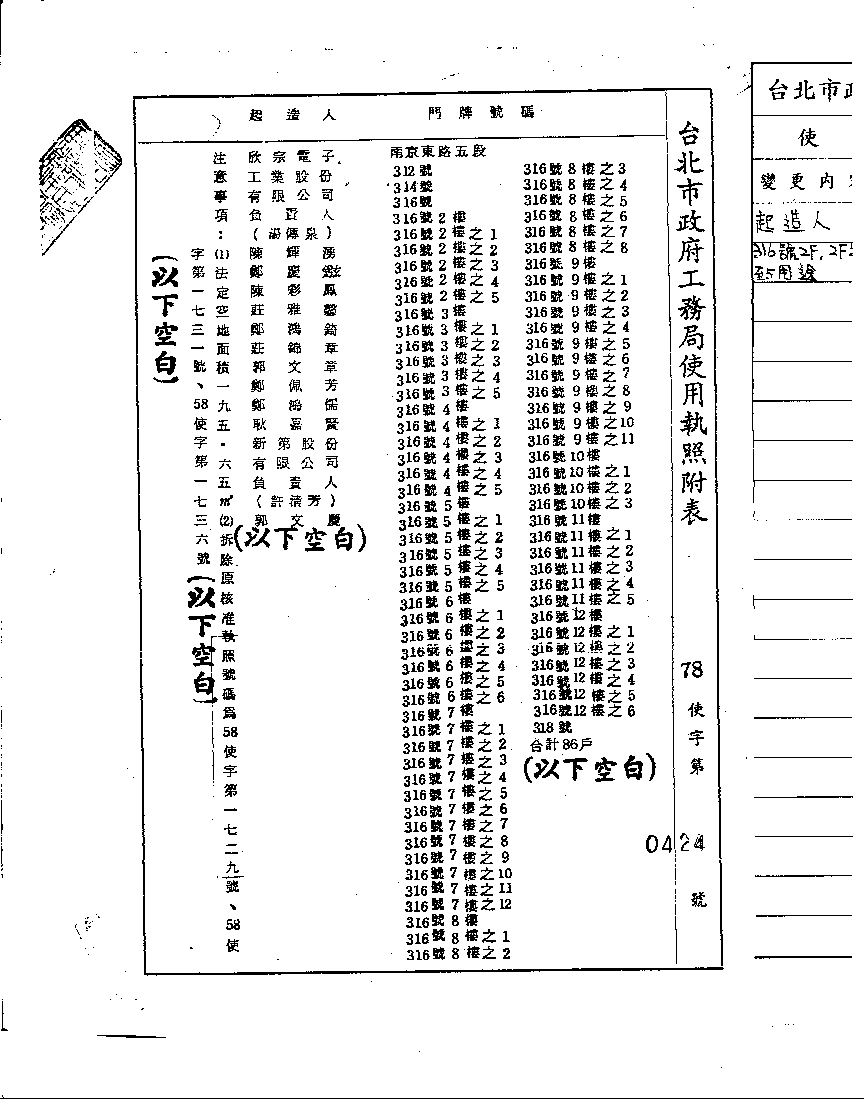 台北市政府工務局使用執照附表
78使字第0424號
門牌號碼
南京東路五段
312號
314號
316號
316號2樓
316號2樓之1
316號2樓之2
316號2樓之3
316號2樓之4
316號2樓之5
316號3樓
316號3樓之1
316號3樓之2
316號3樓之3
316號3樓之4
316號3樓之5
316號4樓
316號4樓之1
316號4樓之2
316號4樓之3
316號4樓之4
316號4樓之5
316號5樓
316號5樓之1
316號5樓之2
316號5樓之3
316號5樓之4
316號5樓之5
316號6樓
316號6樓之1
316號6樓之2
316號6樓之3
316號6樓之4
316號6樓之5
316號6樓之6
316號7樓
316號7樓之1
316號7樓之2
316號7樓之3
316號7樓之4
316號7樓之5
316號7樓之6
316號7樓之7
316號7樓之8
316號7樓之9
316號7樓之10
316號7樓之11
316號7樓之12
316號8樓
316號8樓之1
316號8樓之2
316號8樓之3
316號8樓之4
316號8樓之5
316號8樓之6
316號8樓之7
316號8樓之8
316號9樓
316號9樓之1
316號9樓之2
316號9樓之3
316號9樓之4
316號9樓之5
316號9樓之6
316號9樓之7
316號9樓之8
316號9樓之9
316號9樓之10
316號9樓之11
316號10樓
316號10樓之1
316號10樓之2
316號10樓之3
316號11樓
316號11樓之1
316號11樓之2
316號11樓之3
316號11樓之4
316號11樓之5
316號12樓
316號12樓之1
316號12樓之2
316號12樓之3
316號12樓之4
316號12樓之5
316號12樓之6
318號
合計86戶
(以下空白)
起造人
欣宗電子
工業股份
有限公司
負責人
(湯傳泉)
陳輝湧
鄭慶
陳彩鳳
莊雅馨
鄭鴻錡
莊錦章
郭文章
鄭佩芳
鄭鴻儒
耿嘉賢
新第股份
有限公司
負責人
(許清芳)
郭文慶
(以下空白)
注意事項:
(1)法定空地面積一九五.六五㎡(2)拆除原核准執照號碼為58使字第一七二九號、58使
字第一七三一號、58使字第一七三六號
(以下空白)
(以下空白)
台北市政
使
變更內容
起造人
316號2F,2F